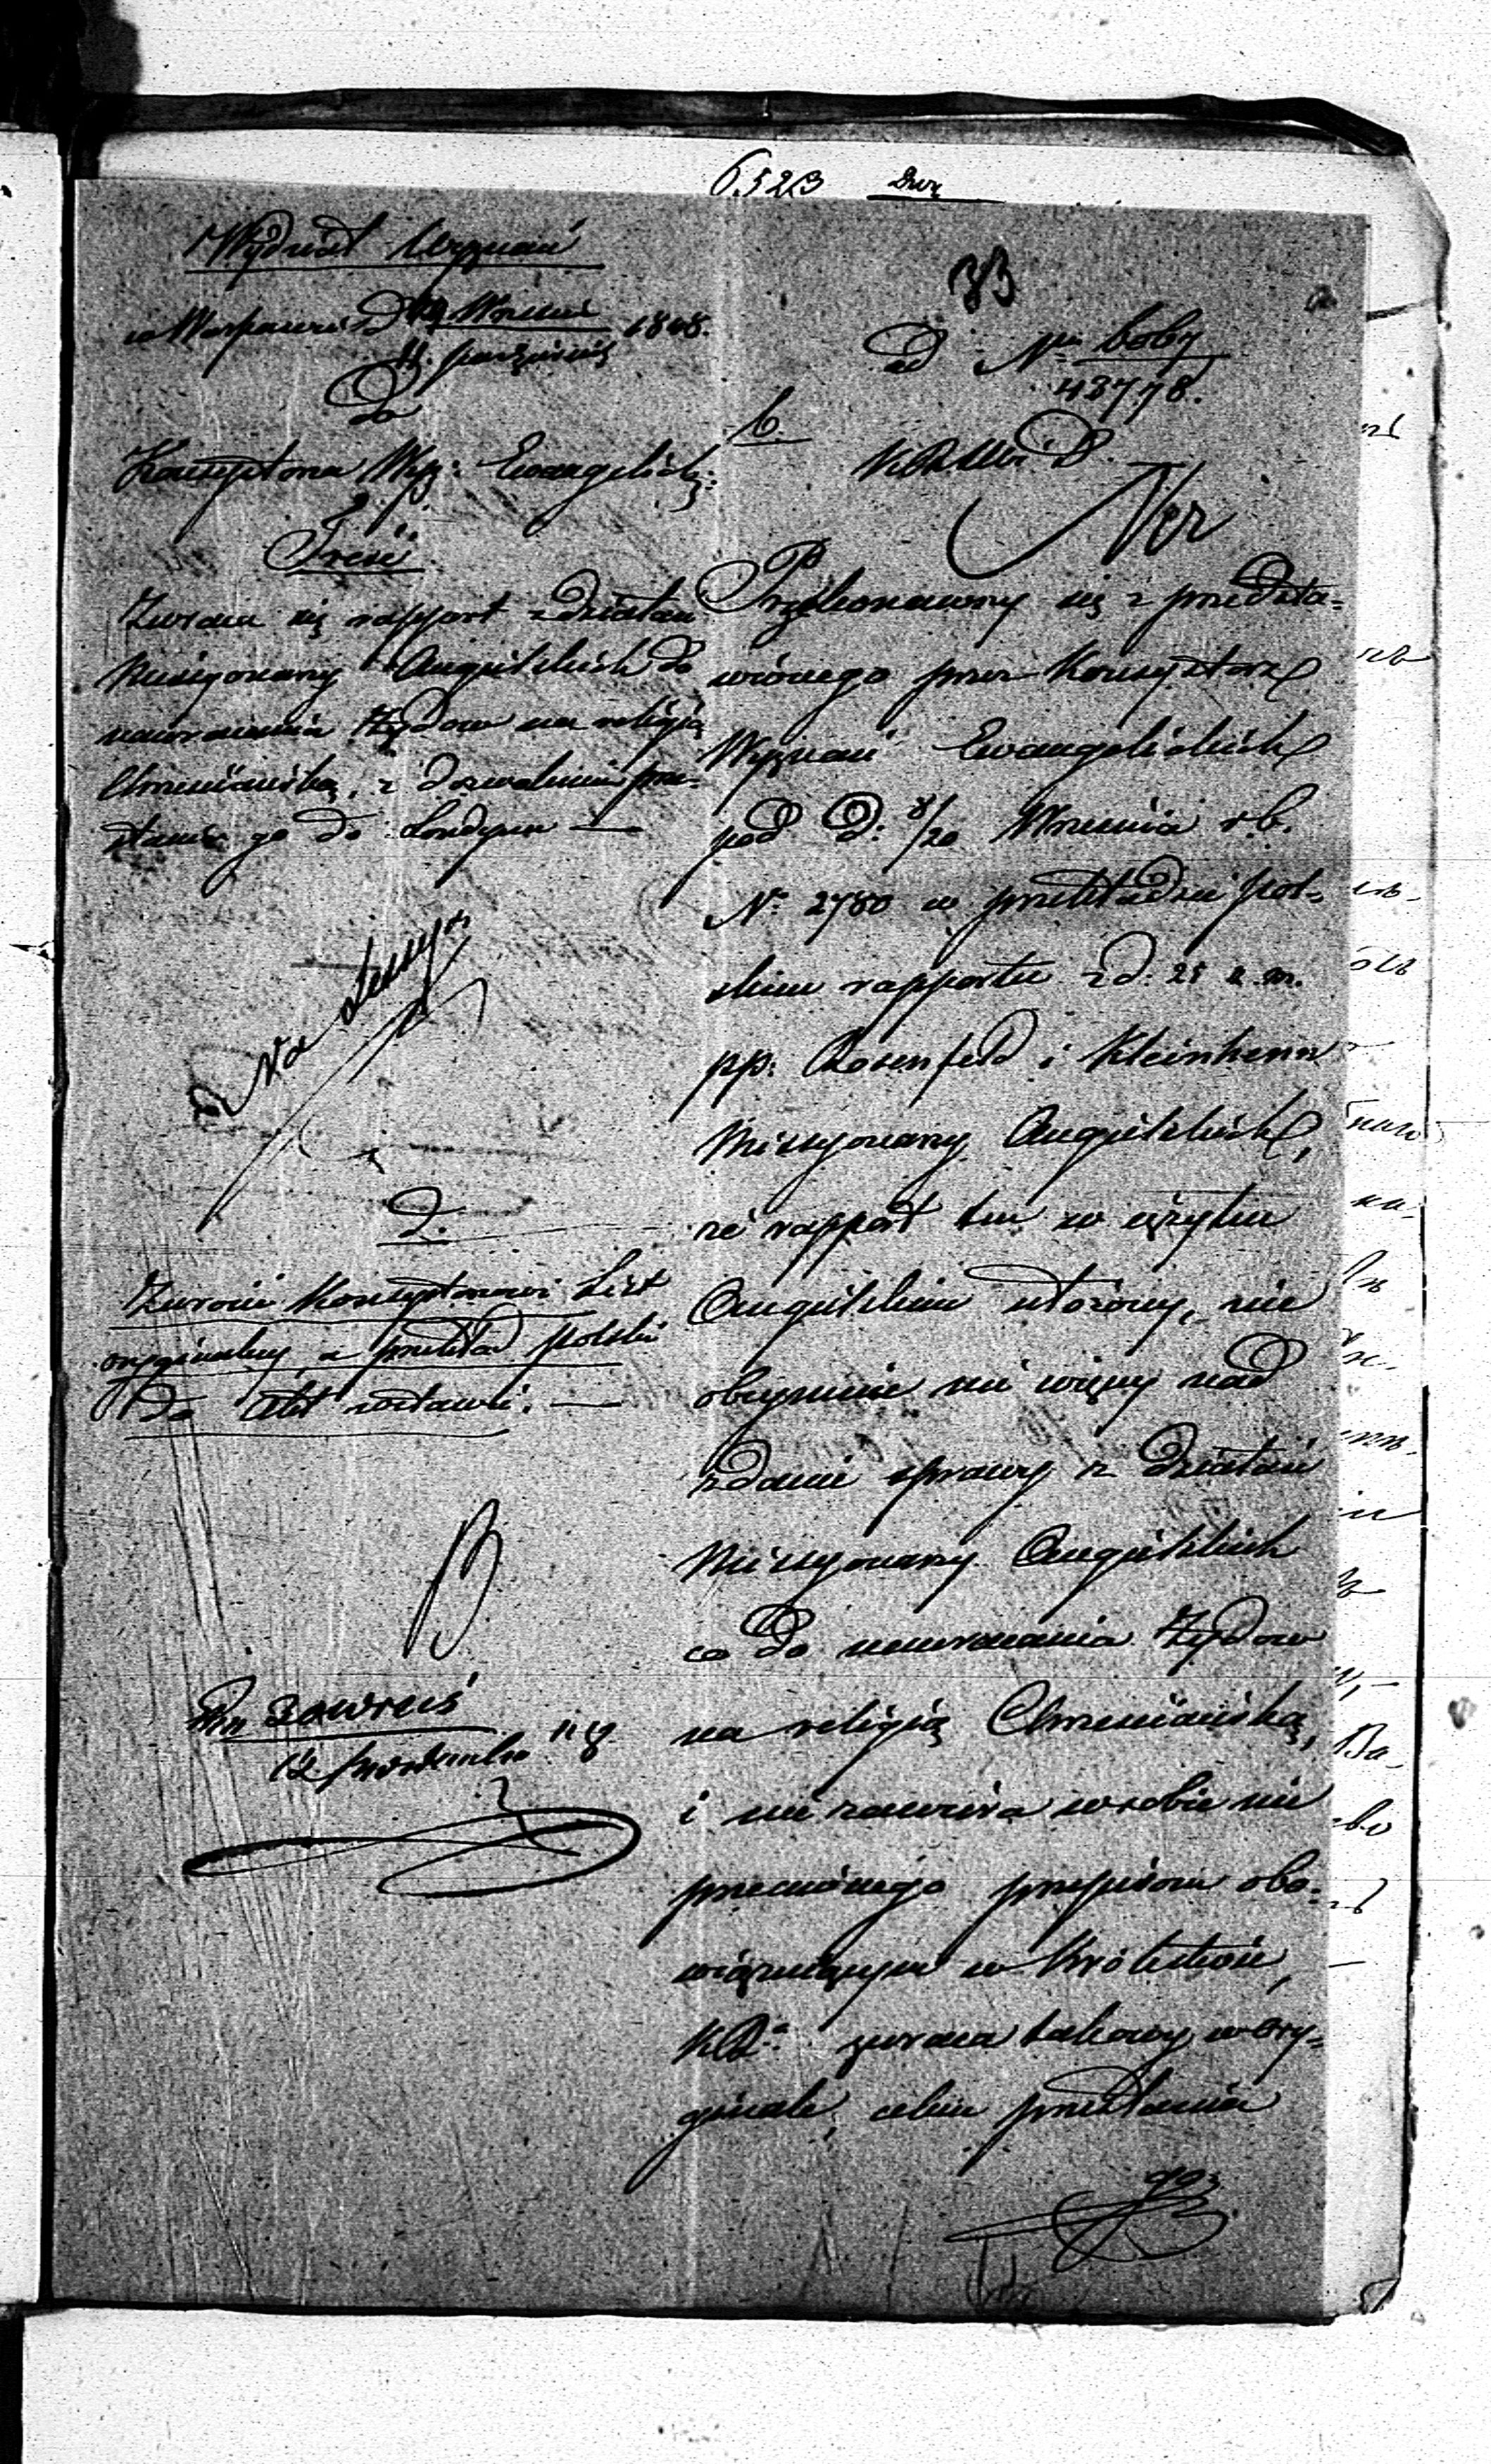 6523
Wydział Wyznań
w Warszawie d. 29 Wrześ. 1848.
11. Październ.
Do
Konsystorza Wyz: Ewangelick:
Treść
Zwraca się rapport z działań
Missyonarzy Angielskich do
nawracania Żydow na religią
Chrześciańską, z dozwoleniem prze-
słania go do Londynu —
D.
Zwrócić Konsystorzowi List
oryginalny a przekład polski
do Akt zostawić. —
83
ad Nr 6069
43778.
b.
Przekonawszy się z przedsta=
wionego przez Konsystorz
Wyznań Ewangelickich
pod D. 8/20 Września r b.
Nº 2780 w przekładzie pol=
skim rapportu z d. 25 z. m.
pp: Rosenfeld i Kleinhenn
Missyonarzy Angielskich,
że rapport ten w języku
Angielskim ułożony, nie
obejmuje nic więcej nad
zdanie sprawy z działań
Missyonarzy Angielskich
co do nawracania Żydow
na religią Chrześciańską,
i nie zawiera w sobie nic
przeciwnego przepisom obo=
wiązującym w Królestwie,
zwraca takowy w ory=
ginale, celem przesłania
go